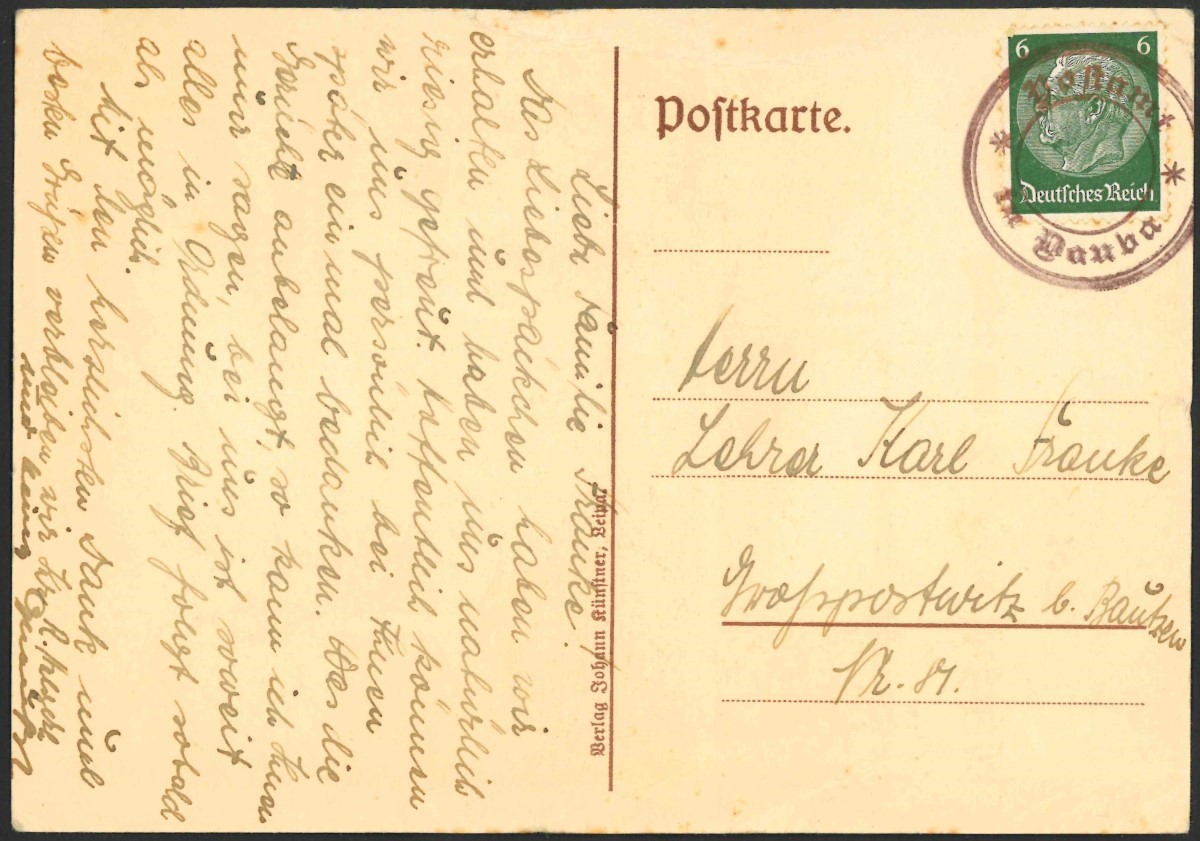 Liebe Familie Franke!
Das Liebespäckchen haben wir
erhalten und haben uns natürlich
riesig gefreut. Hoffentlich können
wir uns persönlich bei Ihnen
später einmal bedanken. Was die
Gerüchte anbelangt, so kann ich Ihnen
nur sagen, bei uns ist soweit
alles in Ordnung. Brief folgt sobald
als möglich.
Mit den herzlichsten Dank und
besten Grüßen verbleiben wir
und
Verlag Johann Künstner, Leipa.
Postkarte.
6 6
Deutsches Reich
Postamt
in Dauba
Herrn
Lehrer Karl Franke
Grosspostwitz b. Bautzen
Nr. 81.